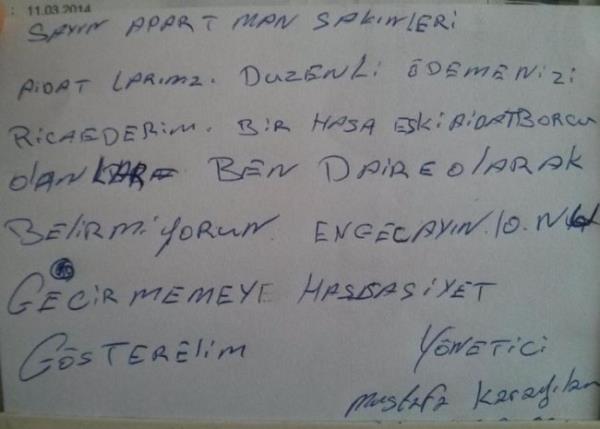 11.03.2014
SAYIN APARTMAN SAKINLERİ
AİDAT LARIMZI. DUZENLİ ÖDEMENİZİ
RİCAEDERİM. BİR HASA ESKİ AİDATBORCU
OLANLAR BEN DAİRE OLARAK
BELİRMİYORUN. ENGECAYIN.10.N
GEÇİRMEMEYE HASSASİYET
GÖSTERELİM YÖNETİCİ
Mustafa Karayılan